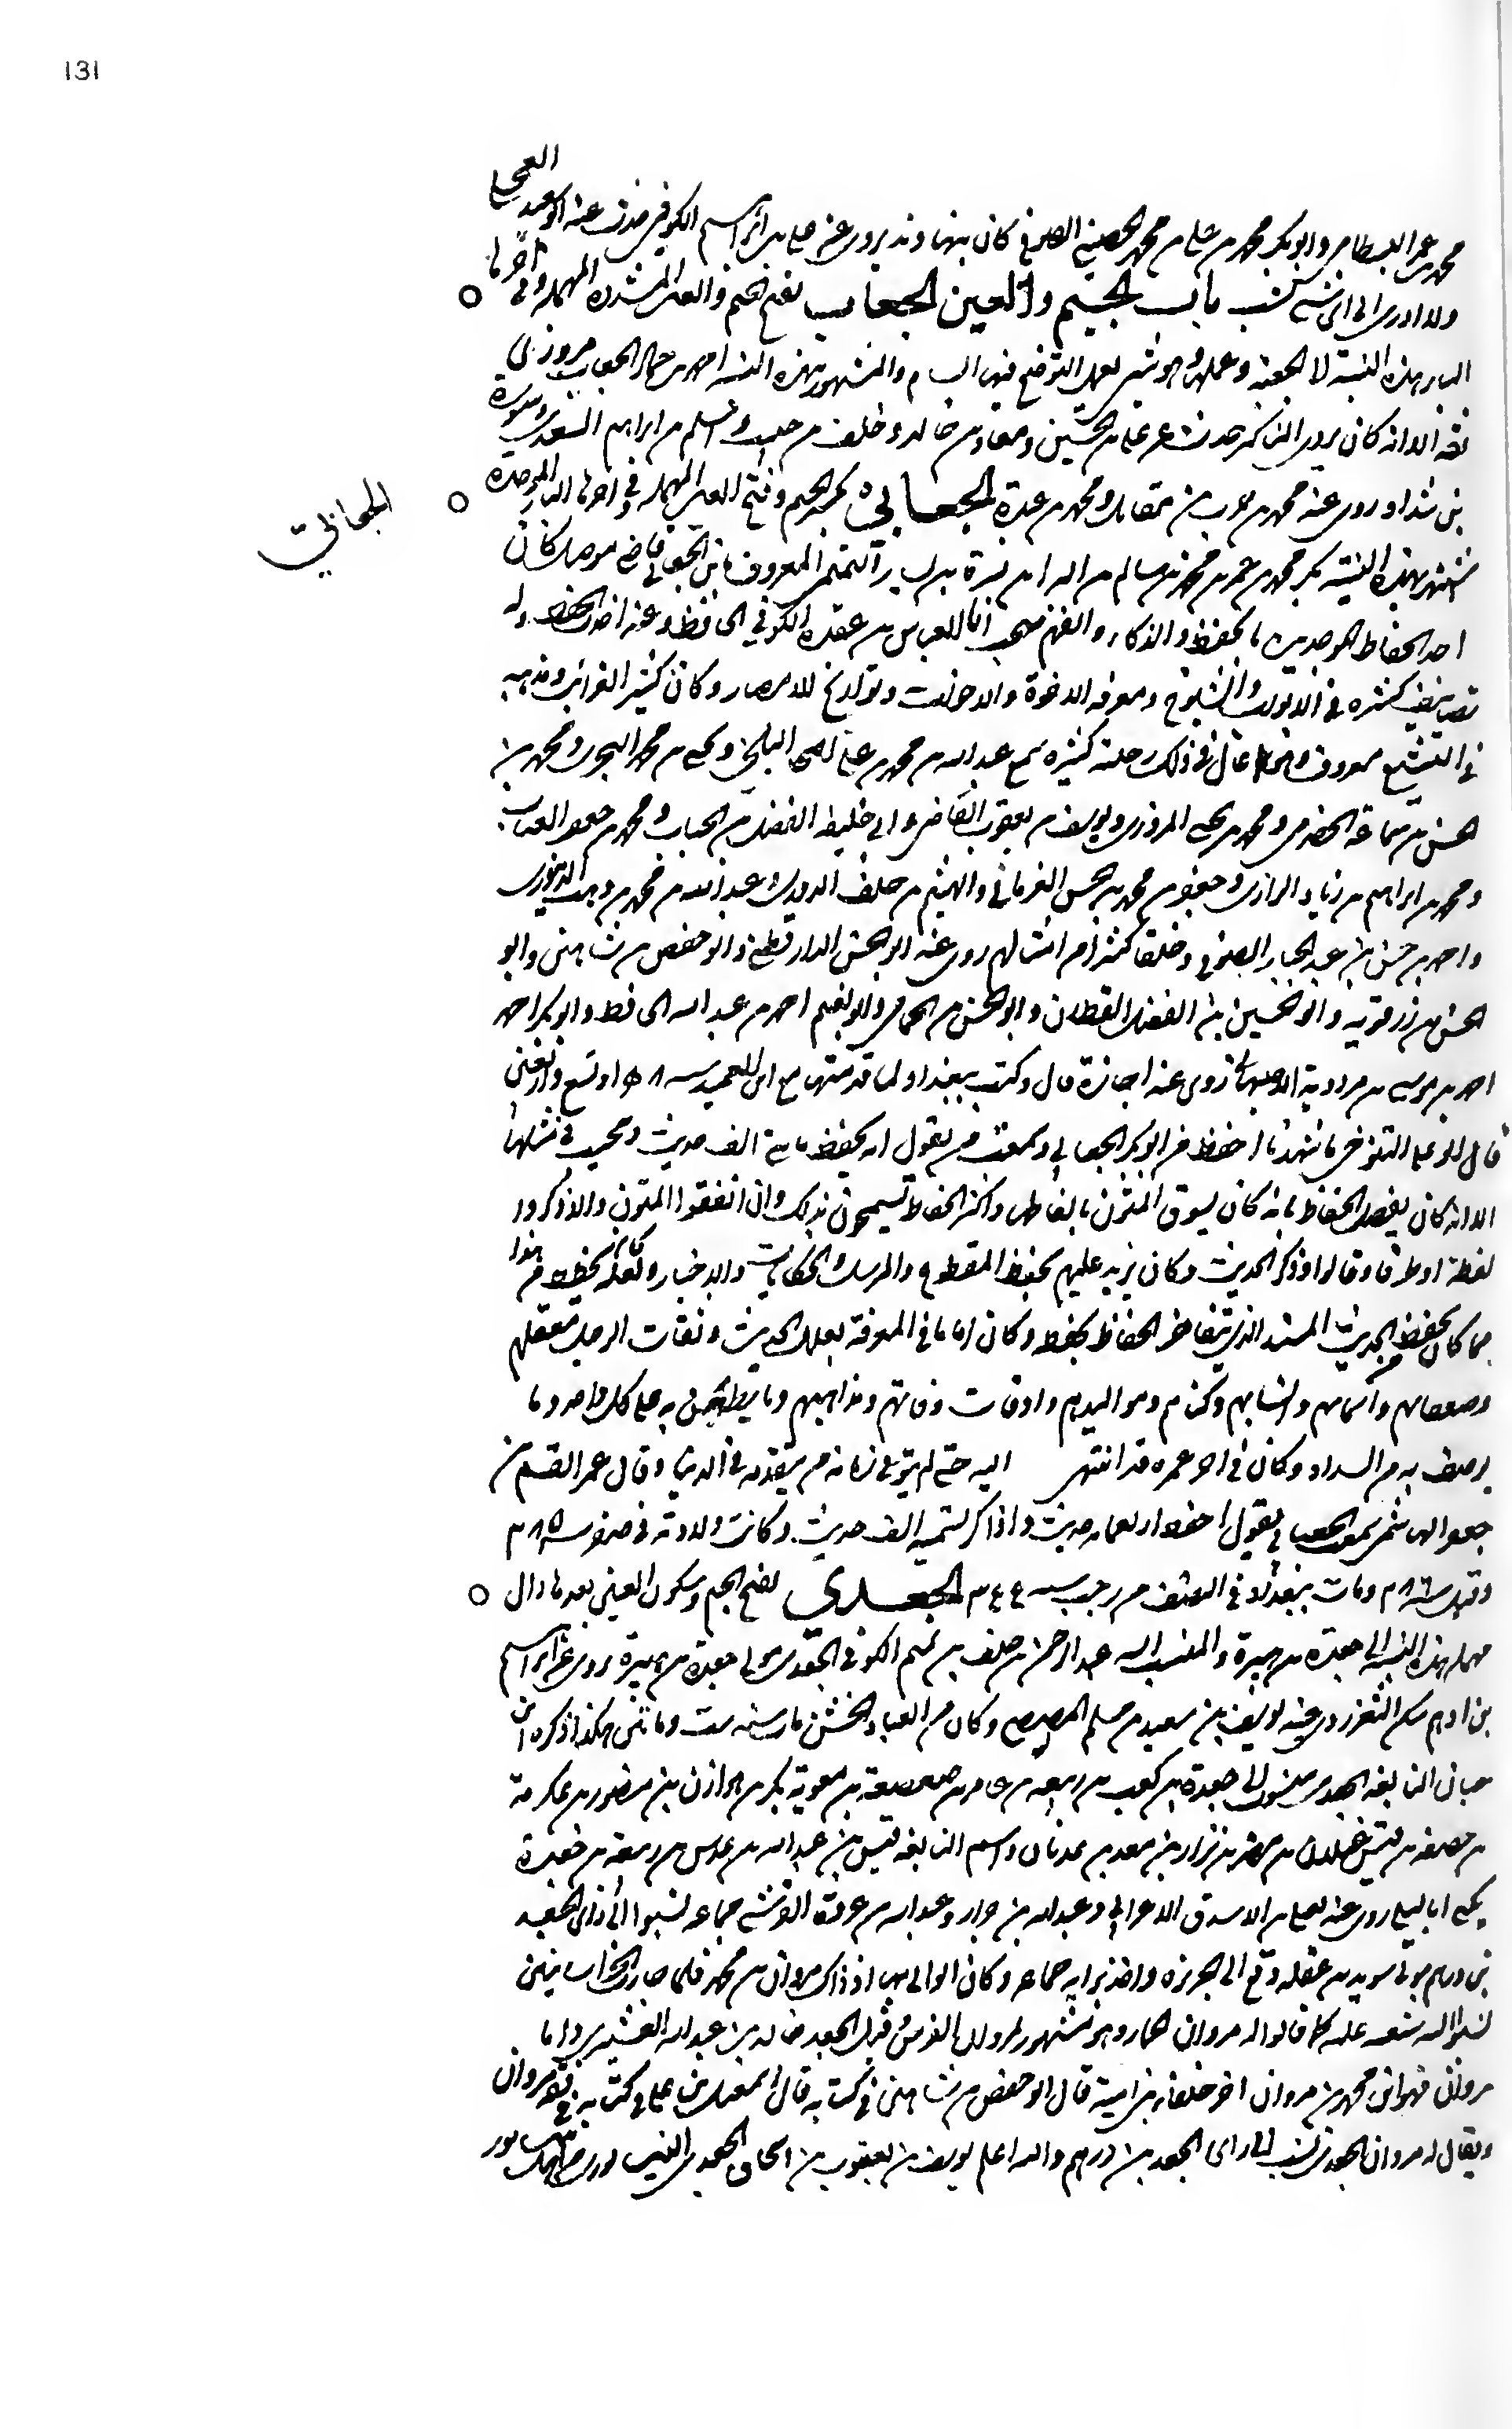 131
محمد بن عمر البسطامي وابو بكر محمد بن علي بن محمد الحصيني الصوفي كان بنهاوند يروي عن علي بن ابراهيم الكوفي حدث عنه ابو سعيد
ولا ادري الى اي شي نسب باب الجيم والعين الجعاب بفتح الجيم والعين المشددة المهملة وفي اخرها
الباء هذه النسبة الى الجعبة وعملها وهو شي يعمل لتوضع فيها السهام والمشهور بهذه النسبة احمد بن حماد الجعاب مروزي
ثقة الا انه كان يروي المناكير حدث عن علي بن الحسين ومعاذ بن خالد وخلف بن حبيب واسلم بن ابراهيم السعدي وسورة
بن شداد روى عنه محمد بن حرب بن مقاتل ومحمد بن عبدة الجعابي بكسر الجيم وفتح العين المهملة وفي اخرها الباء الموحدة
الجعابي
اشتهر بهذه النسبة بكر محمد بن عمر بن محمد بن سالم بن البراء بن سبرة بن سيار التميمي المعروف بابن الجعابي قاضي موصل كان
احد الحفاظ الموجودين بالحفظ والذكاء والفهم صحب ابا العباس بن عقدة الكوفي الحافظ وعنه اخذ الحفظ وله
تصانيف كثيرة في الابواب والشيوخ ومعرفة الاخوة والاخوات وتواريخ الامصار وكان كثير الغرائب ومذهبه
في التشيع معروف وهو غال في ذلك رحلته كثيرة سمع عبد الله بن محمد بن علي البلخي ويحيى بن محمد البحري ومحمد بن
الحسن بن سماعة الحضرمي ومحمد بن يحيى المروزي ويوسف بن يعقوب القاضي وابي خليفة الفضل بن الحباب ومحمد بن جعفر القتات
ومحمد بن ابراهيم بن زياد الرازي وجعفر بن محمد بن الحسن الفريابي والهيثم بن خلف الدوري وعبد الله بن محمد بن وهب الدينوري
واحمد بن حسن بن عبد الجبار الصوفي وخلقا كثيرا من امثالهم روى عنه ابو الحسن الدارقطني وابو حفص بن شاهين وابو
الحسن بن رزقويه وابو الحسين بن الفضل القطان وابو الحسن بن الحمامي وابو نعيم احمد بن عبد الله الحافظ وابو بكر احمد
احمد بن موسى بن مردويه الاصبهاني روى عنه اجازة قال وكتب ببغداد لما قدمتها مع ابن العميد سنة او تسع واربعين
قال ابو علي التنوخي ما شهدنا احفظ من ابو بكر الجعابي وسمعت من يقول انه يحفظ مائة الف حديث ويجيب في مثلها
الا انه كان يفضل الحفاظ بانه كان يسوق المتون بالفاظها واكثر الحفاظ يتسمحون بذلك وان اتفقوا المتون والا ذكروا
لفظة او طرفا وقالوا وذكر الحديث وكان يزيد عليهم بحفظ المقطوع والمرسل والحكايات والاخبار ولعله كان يحفظ من هذا
مما كان يحفظ من الحديث المسند الذي يتفاخر الحفاظ بحفظه وكان اماما في المعرفة بعلل الحديث وثقات الرجال معتلهم
وضعفائهم واسمائهم وانسابهم وكناهم ومواليدهم واوقات وفاتهم ومذاهبهم وما يطعن به على كل واحد وما
يوصف به من السداد وكان في اخر عمره قد انتهى اليه حتى لم يبق في زمانه من يتقدمه في الدنيا وقال عمر القسم بن
جعفر الهاشمي سمعت الجعابي يقول احفظ اربعمائة حديث واذاكر بستمية الف حديث وكانت ولادته في صفر سنة ٢٨٥
وقيل سنة ٢٨٦ ومات ببغداد في النصف من رجب سنة ٣٤٤ الجعدي بفتح الجيم وسكون العين بعدها دال
مهملة هذه النسبة الى جعدة بن هبيرة والمنتسب اليه عبد الرحمن بن خلف بن تميم الكوفي الجعدي مولى جعدة بن هبيرة يروي عن ابراهيم
بن ادهم سكن الثغر روى عنه يوسف بن سعيد بن مسلم المصيصي وكان من العباد الخشن مات سنة ست ومائتين هكذا ذكره ابن
حبان النابغة الجعدي منسوب الى جعدة بن كعب بن ربيعة بن عامر بن صعصعة بن معوية بكر بن هوازن بن منصور بن عكرمة
بن خصفة بن قيس عيلان بن مضر بن نزار بن معد بن عدنان واسم النابغة قيس بن عبد الله بن عدس بن ربيعة بن جعدة
يكنى ابا ليلى روى عنه يعلى بن الاشدق الاعرابي وعبد الله بن جراد وعبد الله بن عروة القرشي جماعة نسبوا الى راي الجعد
بن درهم مولى سويد بن غفلة وقع الى الجزيرة واخذ برايه جماعة وكان الوالي بها اذ ذاك مروان بن محمد فلما جاءت الخراسانيين
نسبوا اليه شنعة عليه كما قالوا له مروان الحمار وهو مشهور بمروان الفرس قتل الجعد خالد بن عبد الله القسري واما
مروان فهو ابن محمد بن مروان اخر خلفاء بني امية قال ابو حفص بن شاهين في كتابه قال اسمعيل بن علي في كتابه في قصة مروان
ويقال له مروان الجعدي نسب الى راي الجعد بن درهم والله اعلم يوسف بن يعقوب بن اسحاق الجعدي النيسابوري